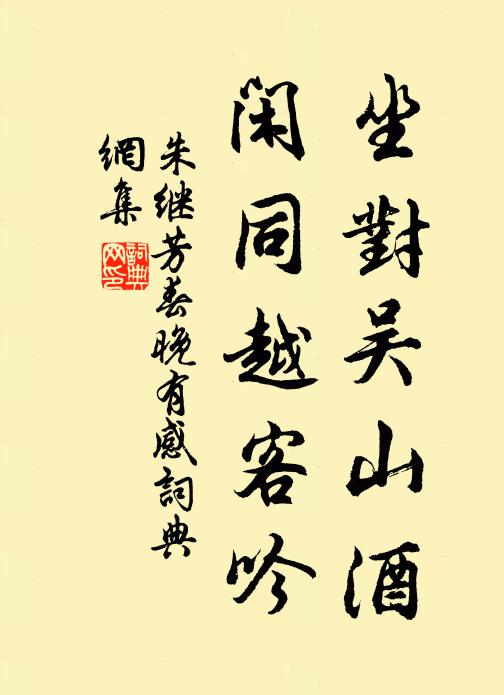 坐對吴山酒
闲同越客吟
朱继芳春晚有感詞典
網集
詞典
网印